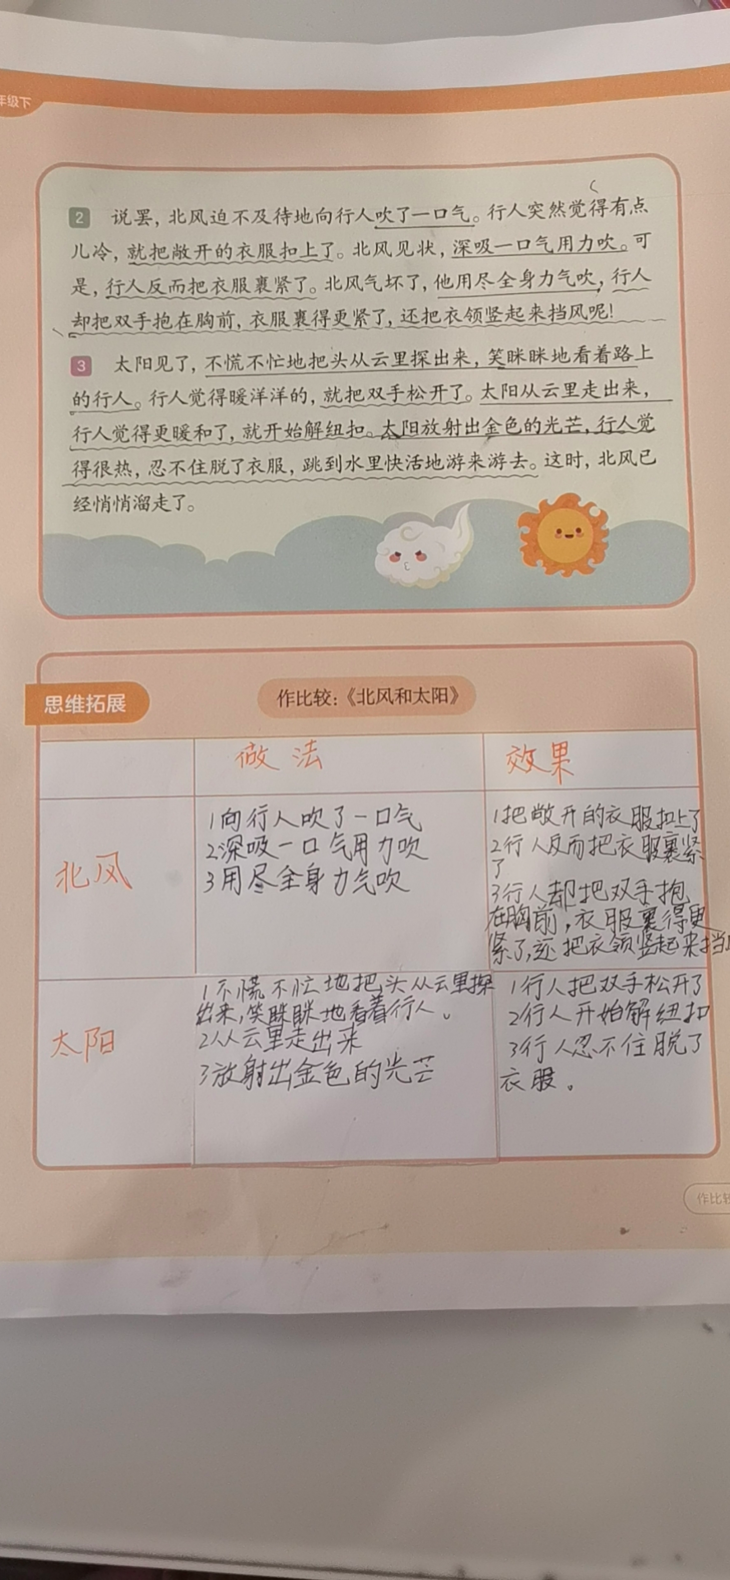 年级下
2 说罢，北风迫不及待地向行人吹了一口气。行人突然觉得有点
儿冷，就把敞开的衣服扣上了。北风见状，深吸一口气用力吹。可
是，行人反而把衣服裹紧了。北风气坏了，他用尽全身力气吹，行人
却把双手抱在胸前，衣服裹得更紧了，还把衣领竖起来挡风呢！
3 太阳见了，不慌不忙地把头从云里探出来，笑眯眯地看着路上
的行人。行人觉得暖洋洋的，就把双手松开了。太阳从云里走出来，
行人觉得更暖和了，就开始解纽扣。太阳放射出金色的光芒，行人觉
得很热，忍不住脱了衣服，跳到水里快活地游来游去。这时，北风已
经悄悄溜走了。
思维拓展
作比较：《北风和太阳》
做法
效果
北风
1向行人吹了一口气
2深吸一口气用力吹
3用尽全身力气吹
1把敞开的衣服扣上了
2行人反而把衣服裹紧
了
3行人却把双手抱
在胸前，衣服裹得更
紧了，还把衣领竖起来挡
太阳
1不慌不忙地把头从云里探
出来，笑眯眯地看着行人。
2从云里走出来
3放射出金色的光芒
1行人把双手松开了
2行人开始解纽扣
3行人忍不住脱了
衣服。
作比较